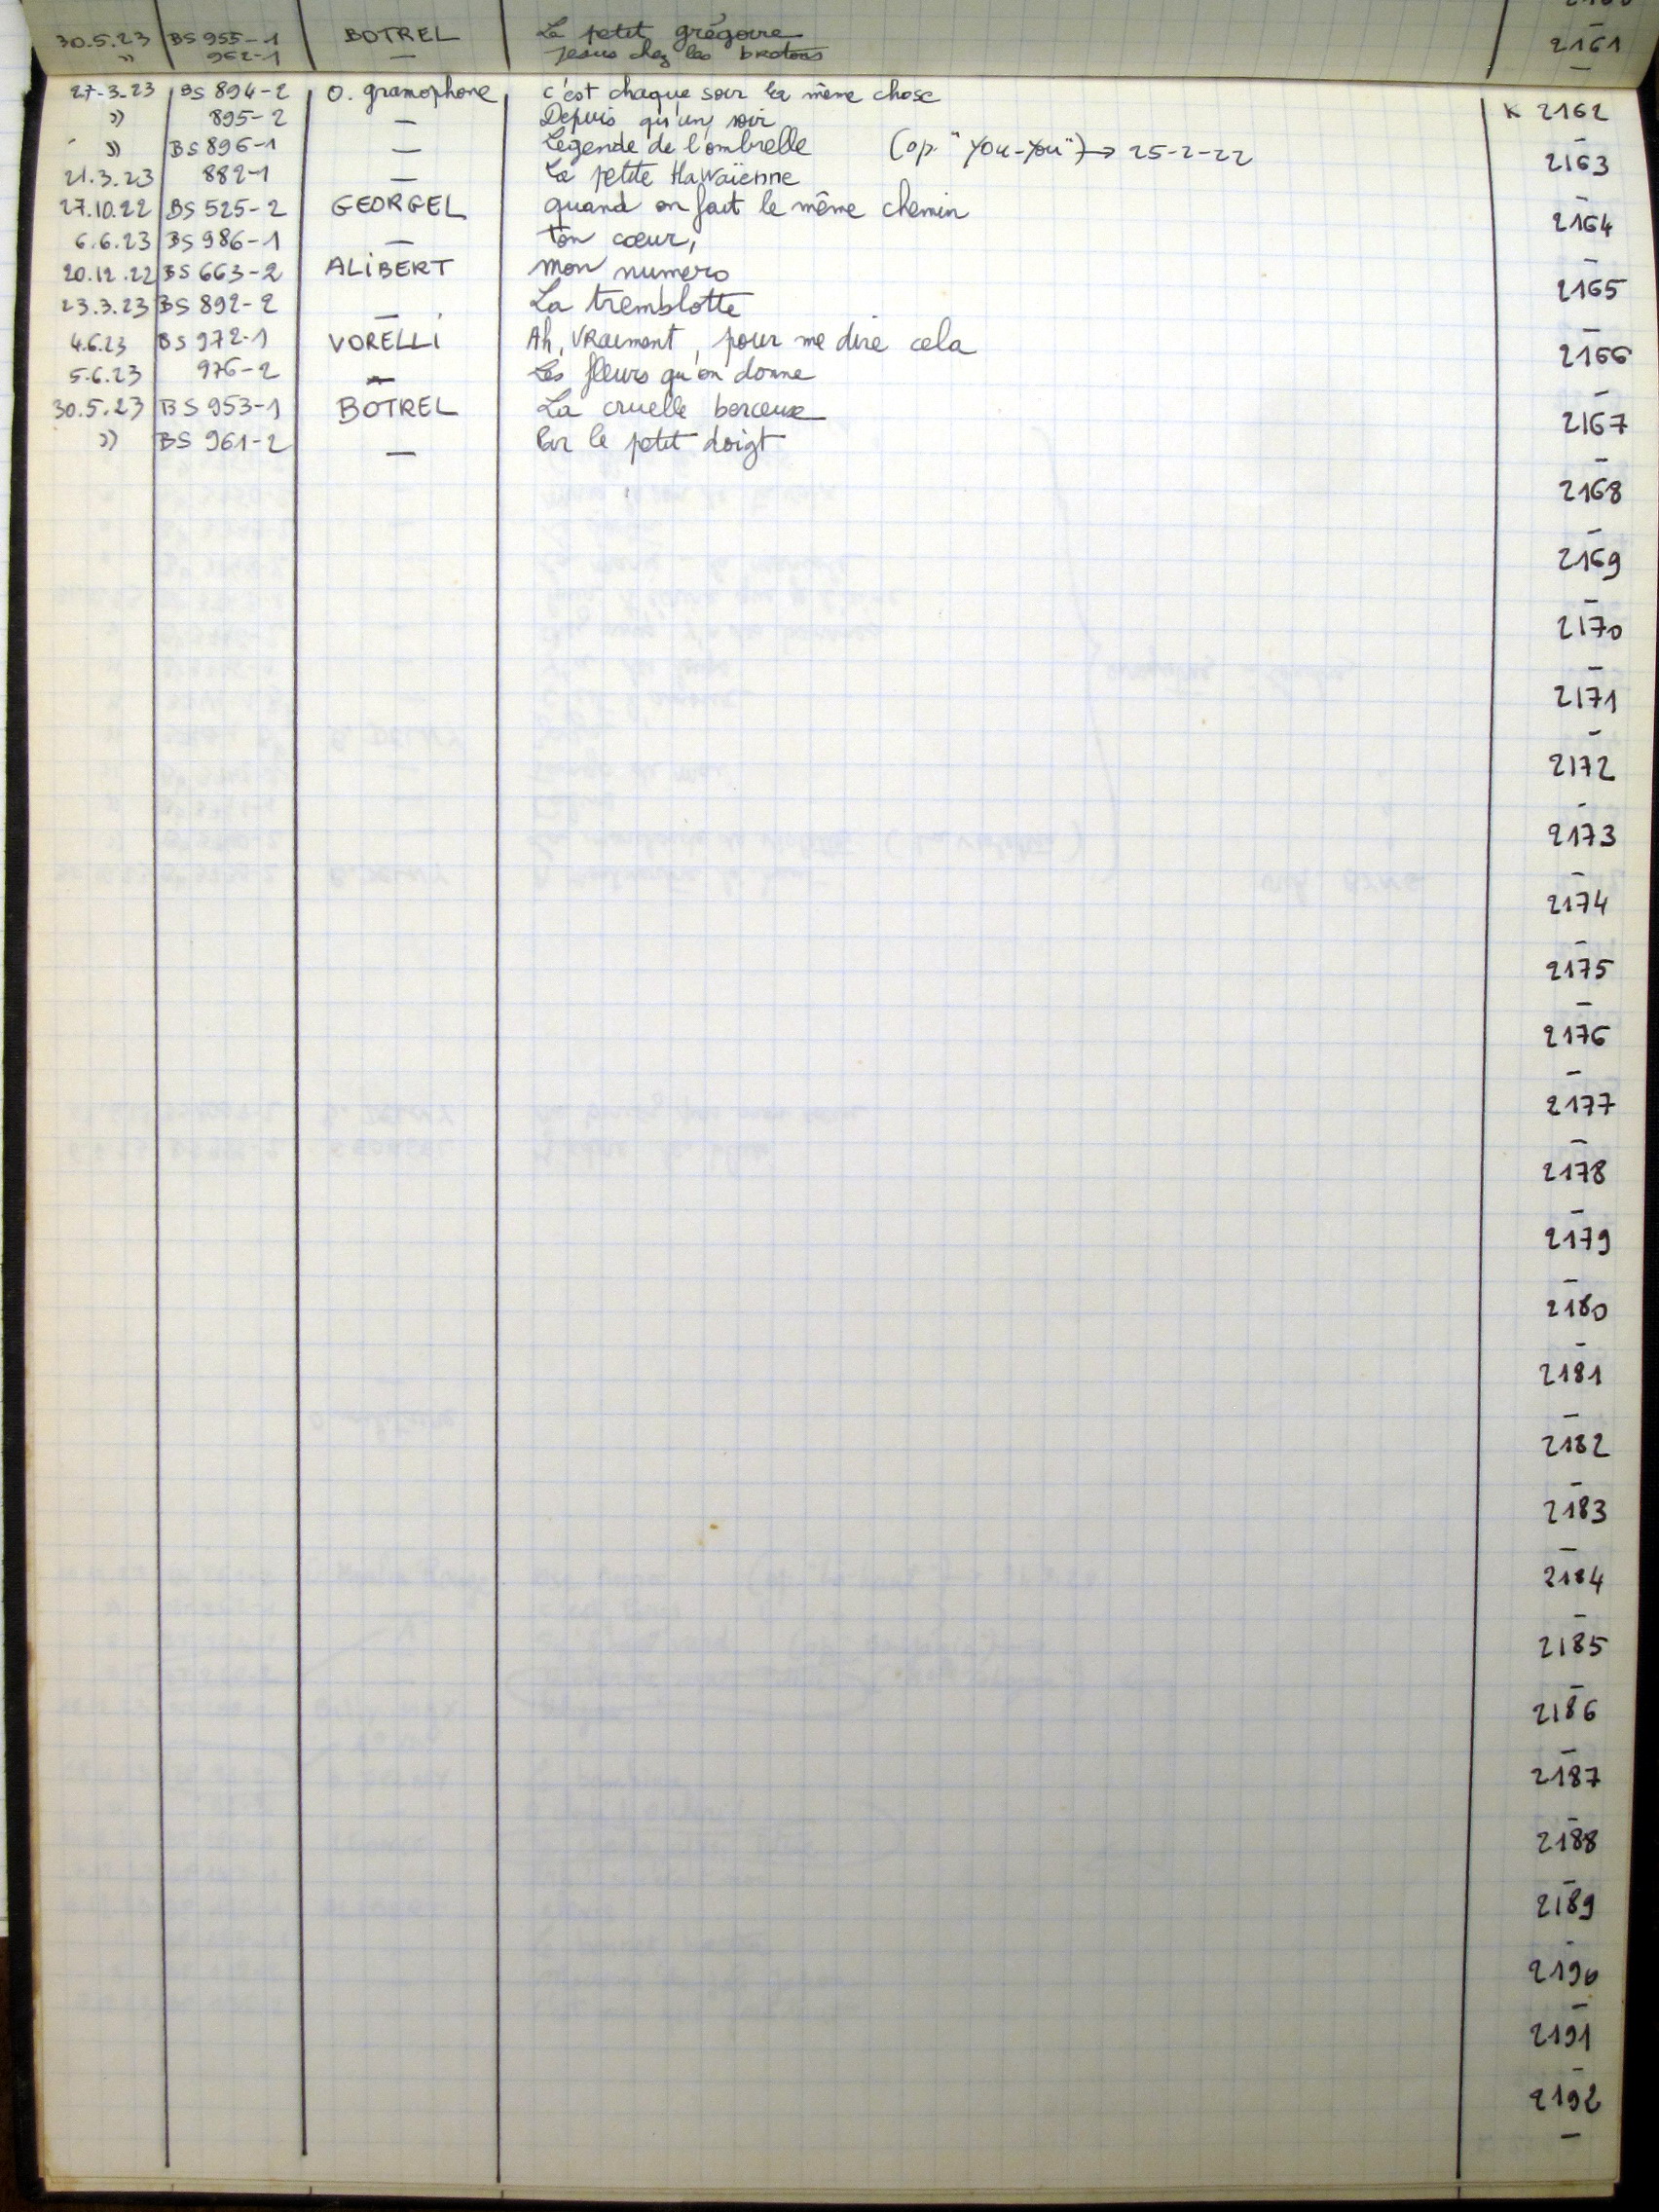 30.5.23 BS 955-1 BOTREL Le petit grégoire 2161
» 962-1 — Jesus chez les bretons —
27-3.23 BS 894-2 O. gramophone c'est chaque soir la même chose K 2162
» 895-2 — Depuis qu'un soir —
» BS 896-1 — Légende de l'ombrelle (op "You-You") → 25-2-22 2163
21.3.23 882-1 — La petite Hawaïenne —
27.10.22 BS 525-2 GEORGEL quand on fait le même chemin 2164
6.6.23 BS 986-1 — Ton cœur, —
20.12.22 BS 663-2 ALIBERT mon numero 2165
23.3.23 BS 892-2 — La tremblotte —
4.6.23 BS 972-1 VORELLI Ah, vraiment, pour me dire cela 2166
5.6.23 976-2 — Les fleurs qu'on donne —
30.5.23 BS 953-1 BOTREL La cruelle berceuse 2167
» BS 961-2 — Par le petit doigt —
2168
—
2169
—
2170
—
2171
—
2172
—
2173
—
2174
—
2175
—
2176
—
2177
—
2178
—
2179
—
2180
—
2181
—
2182
—
2183
—
2184
—
2185
—
2186
—
2187
—
2188
—
2189
—
2190
—
2191
—
2192
—